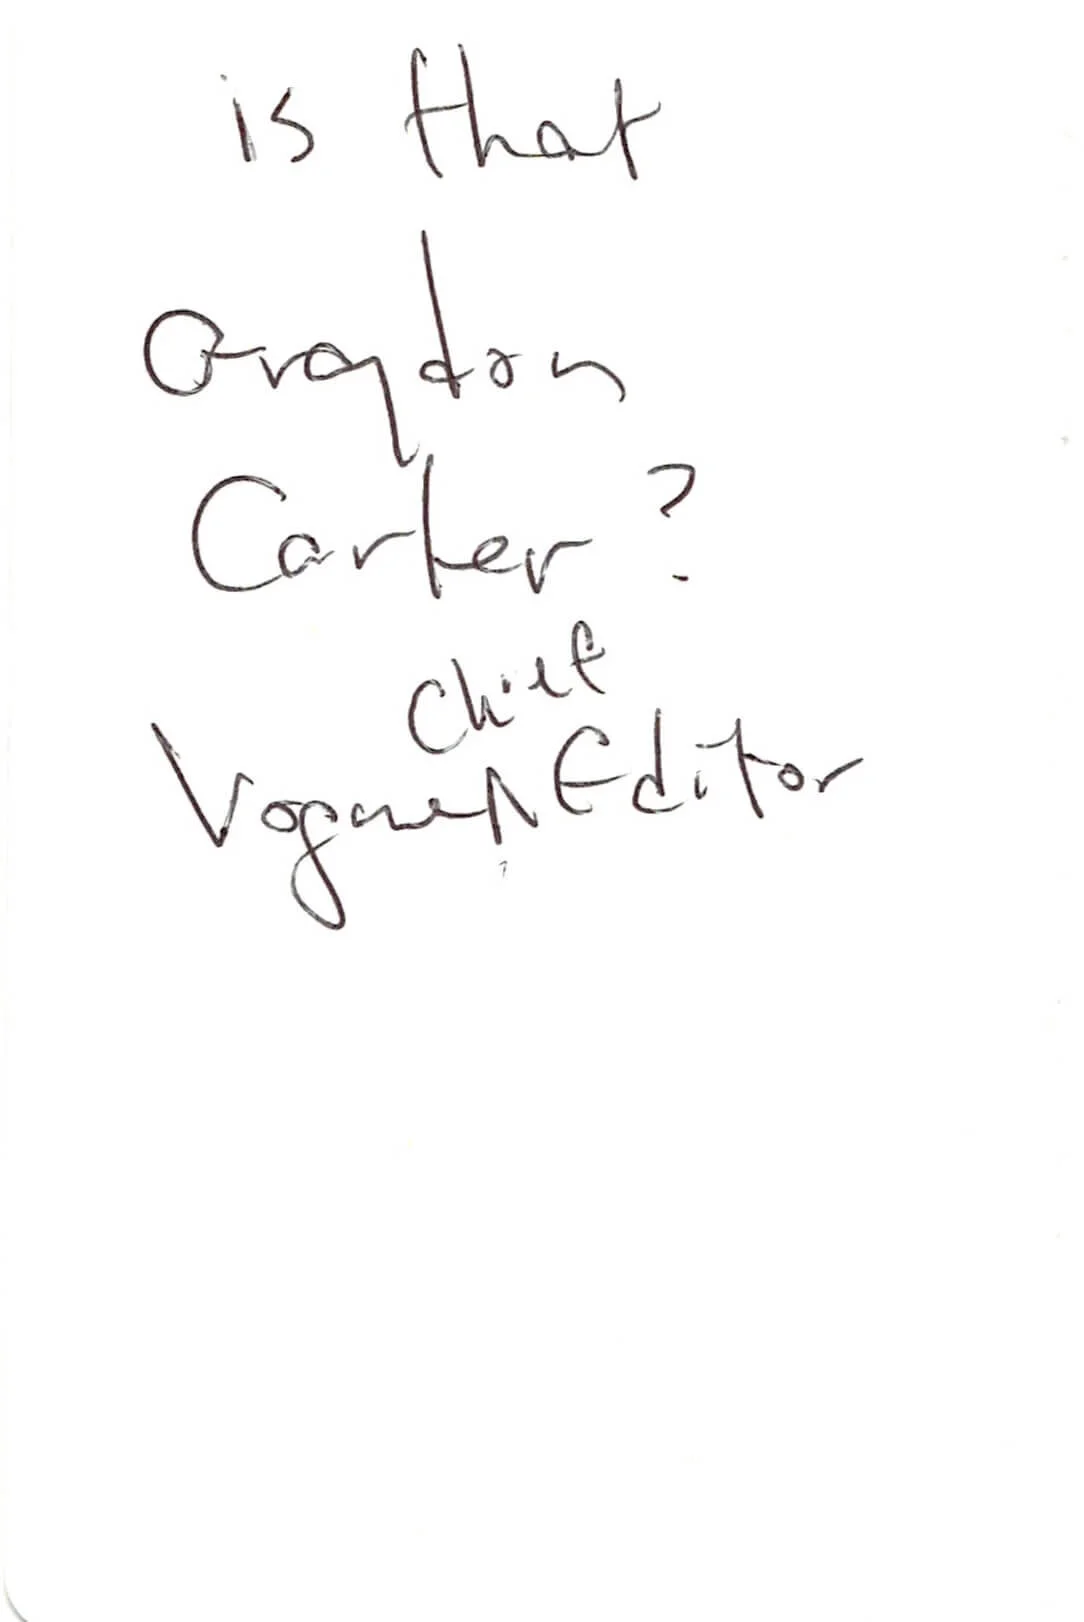 is that
Graydon
Carter?
Chief
Vogue ^ Editor